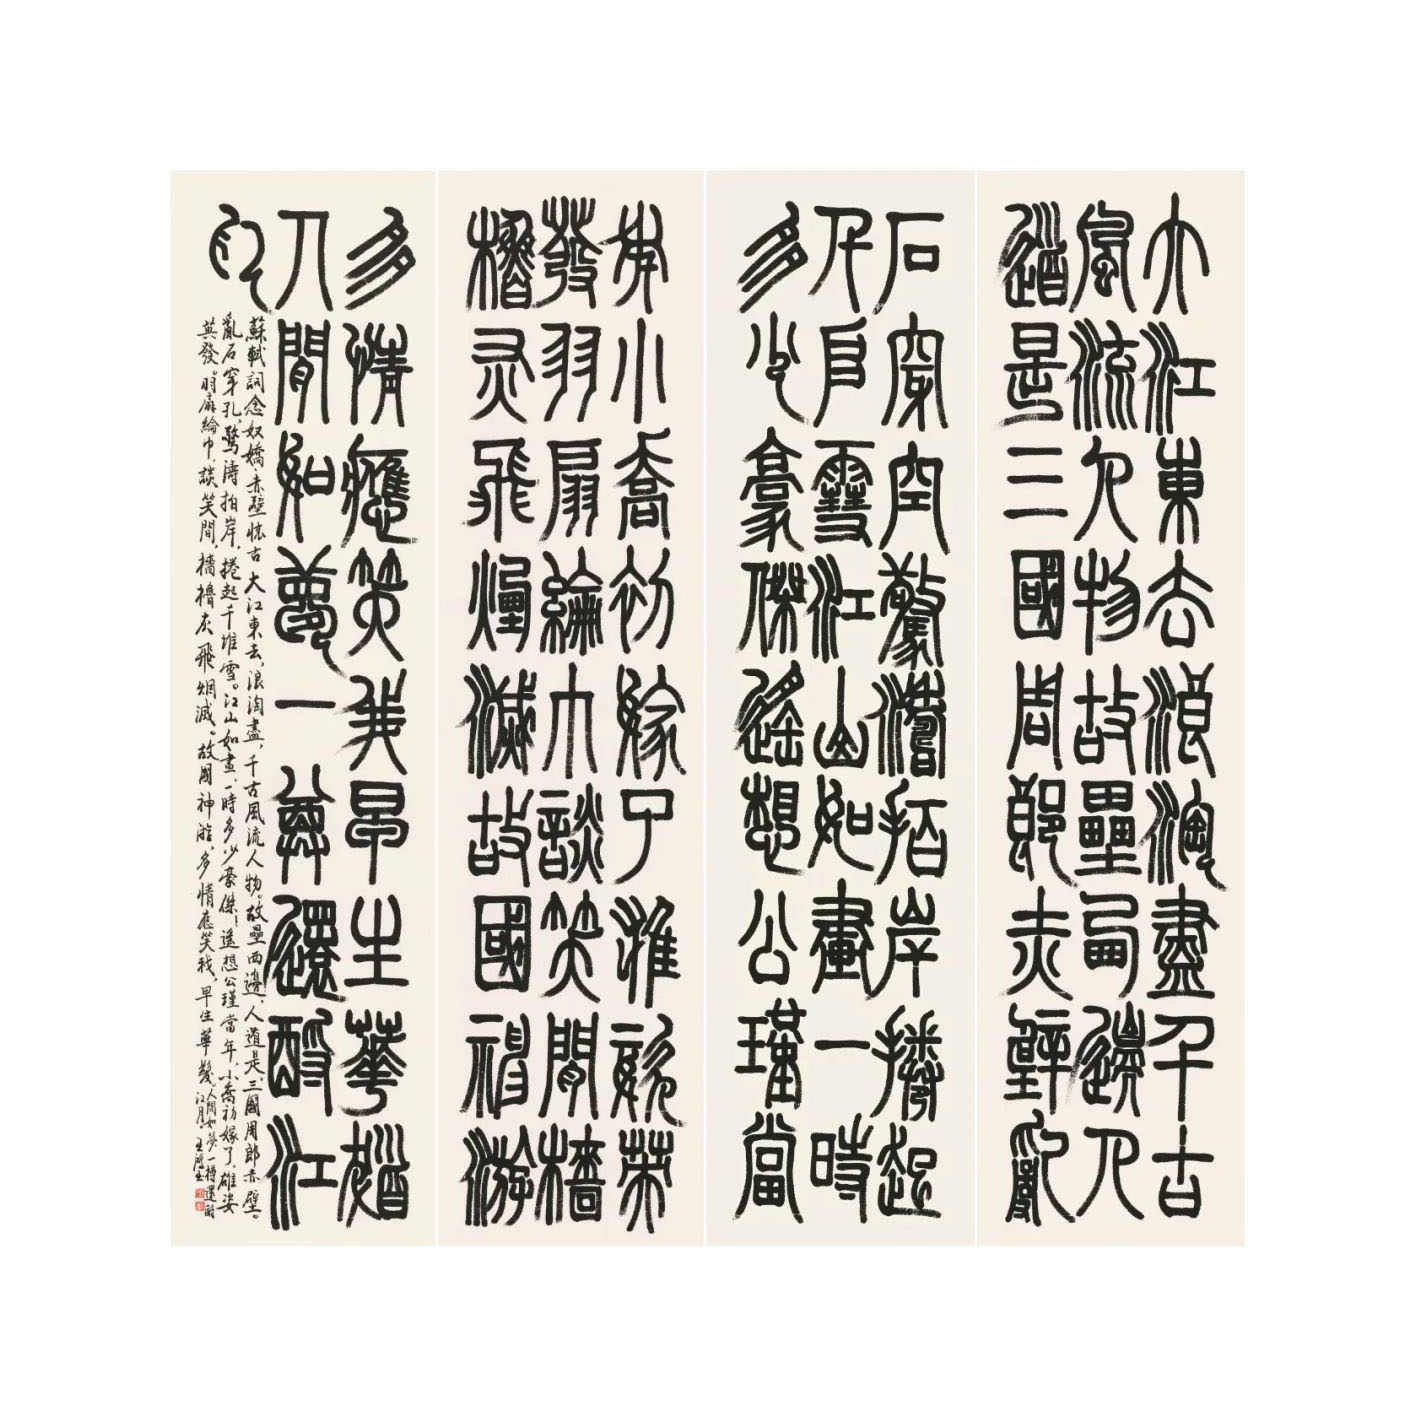 大江東去浪淘盡千古
風流人物故壘西邊人
道是三國周郎赤壁亂
石穿空驚濤拍岸捲起
千堆雪江山如畫一時
多少豪傑遙想公瑾當
年小喬初嫁了雄姿英
發羽扇綸巾談笑間檣
櫓灰飛煙滅故國神游
多情應笑我早生華髮
人間如夢一尊還酹江
月
蘇軾詞念奴嬌·赤壁懷古 大江東去,浪淘盡,千古風流人物。故壘西邊,人道是,三國周郎赤壁。
亂石穿孔,驚濤拍岸,捲起千堆雪。江山如畫,一時多少豪傑。遙想公瑾當年,小喬初嫁了,雄姿
英發。羽扇綸巾,談笑間,檣櫓灰飛烟滅。故國神游,多情應笑我,早生華髮。人間如夢,一樽還酹
江月。王